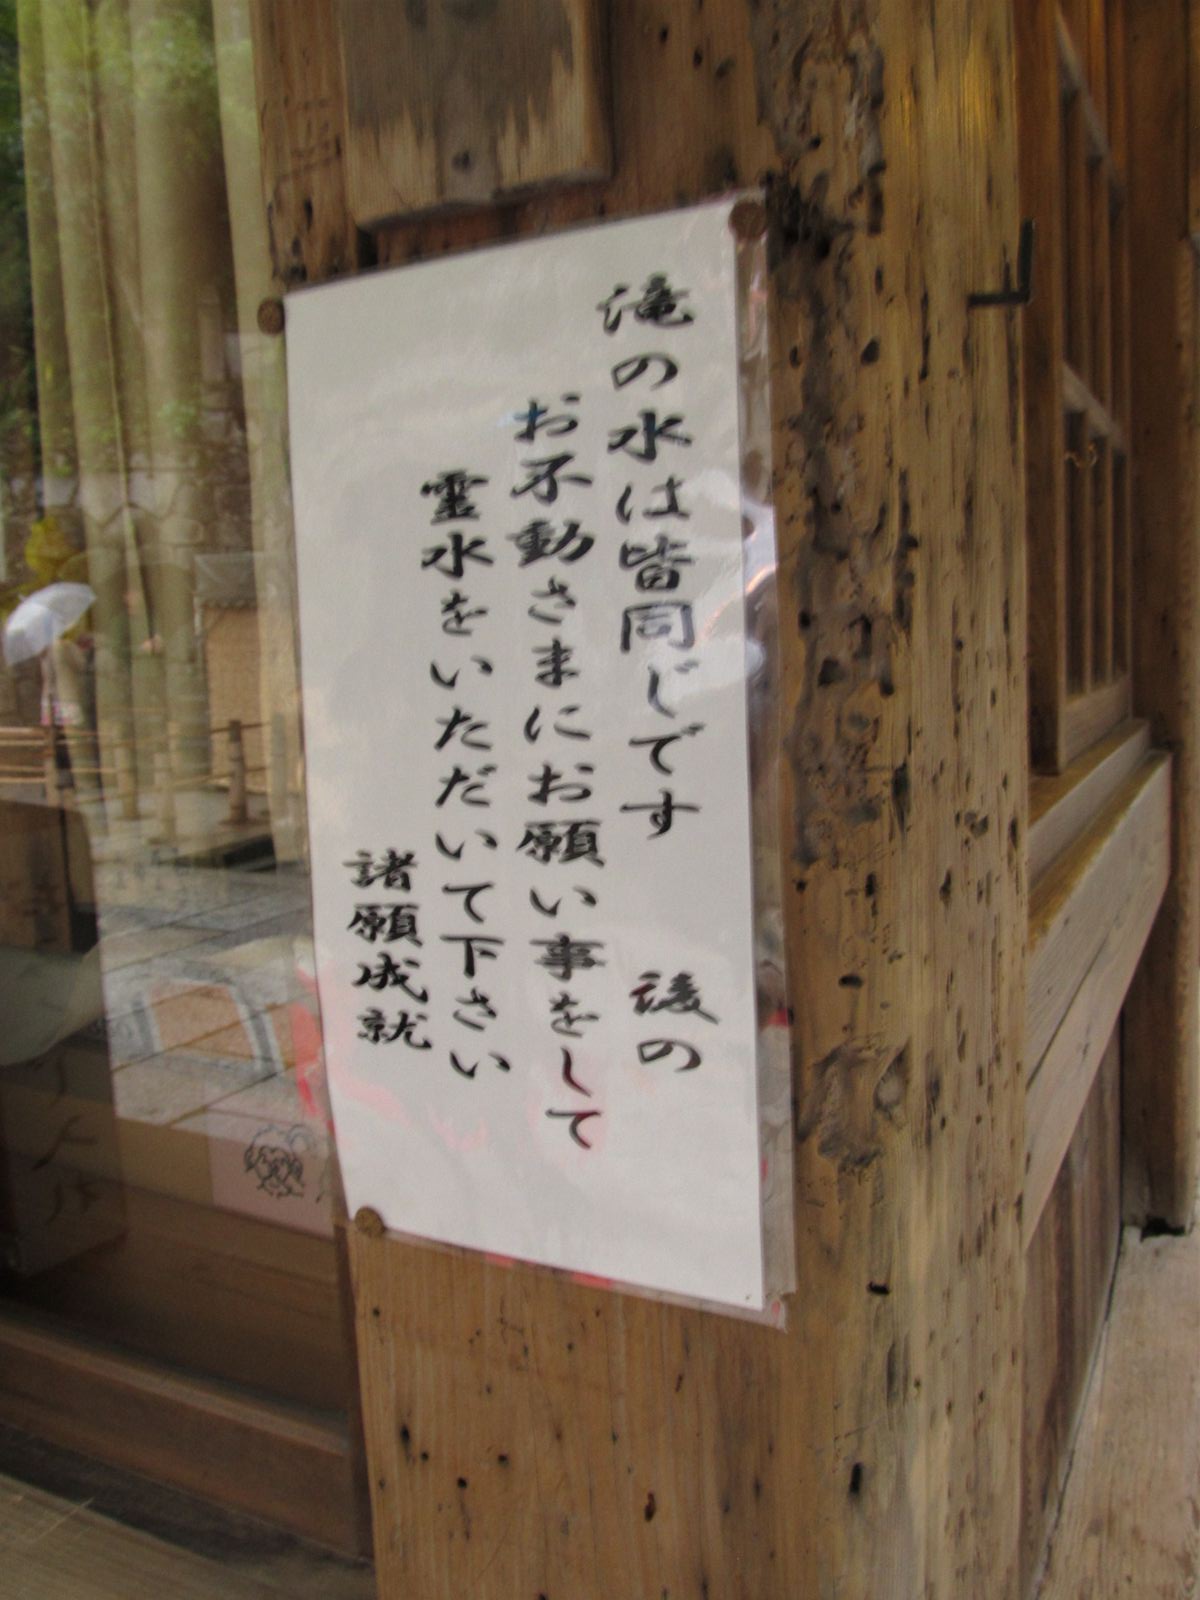 滝の水は皆同じです　後の
お不動さまにお願い事をして
霊水をいただいて下さい
諸願成就